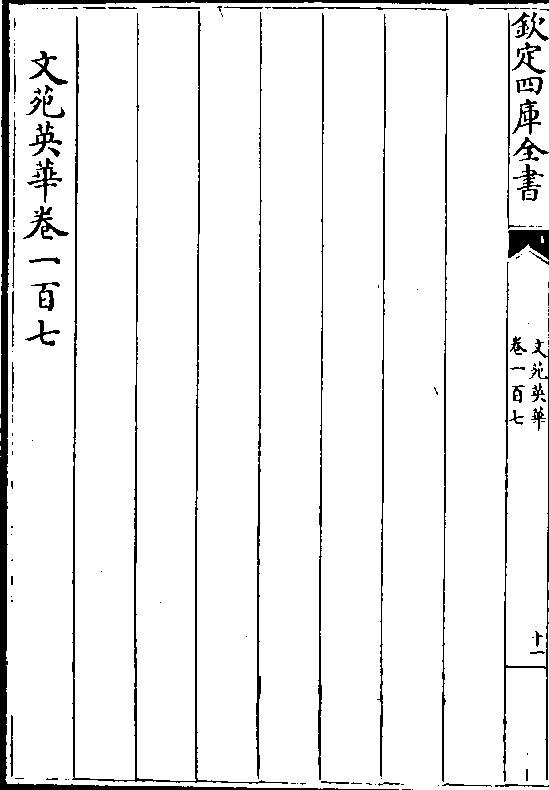 欽定四庫全書
文苑英華
卷一百七
十一
文苑英華卷一百七